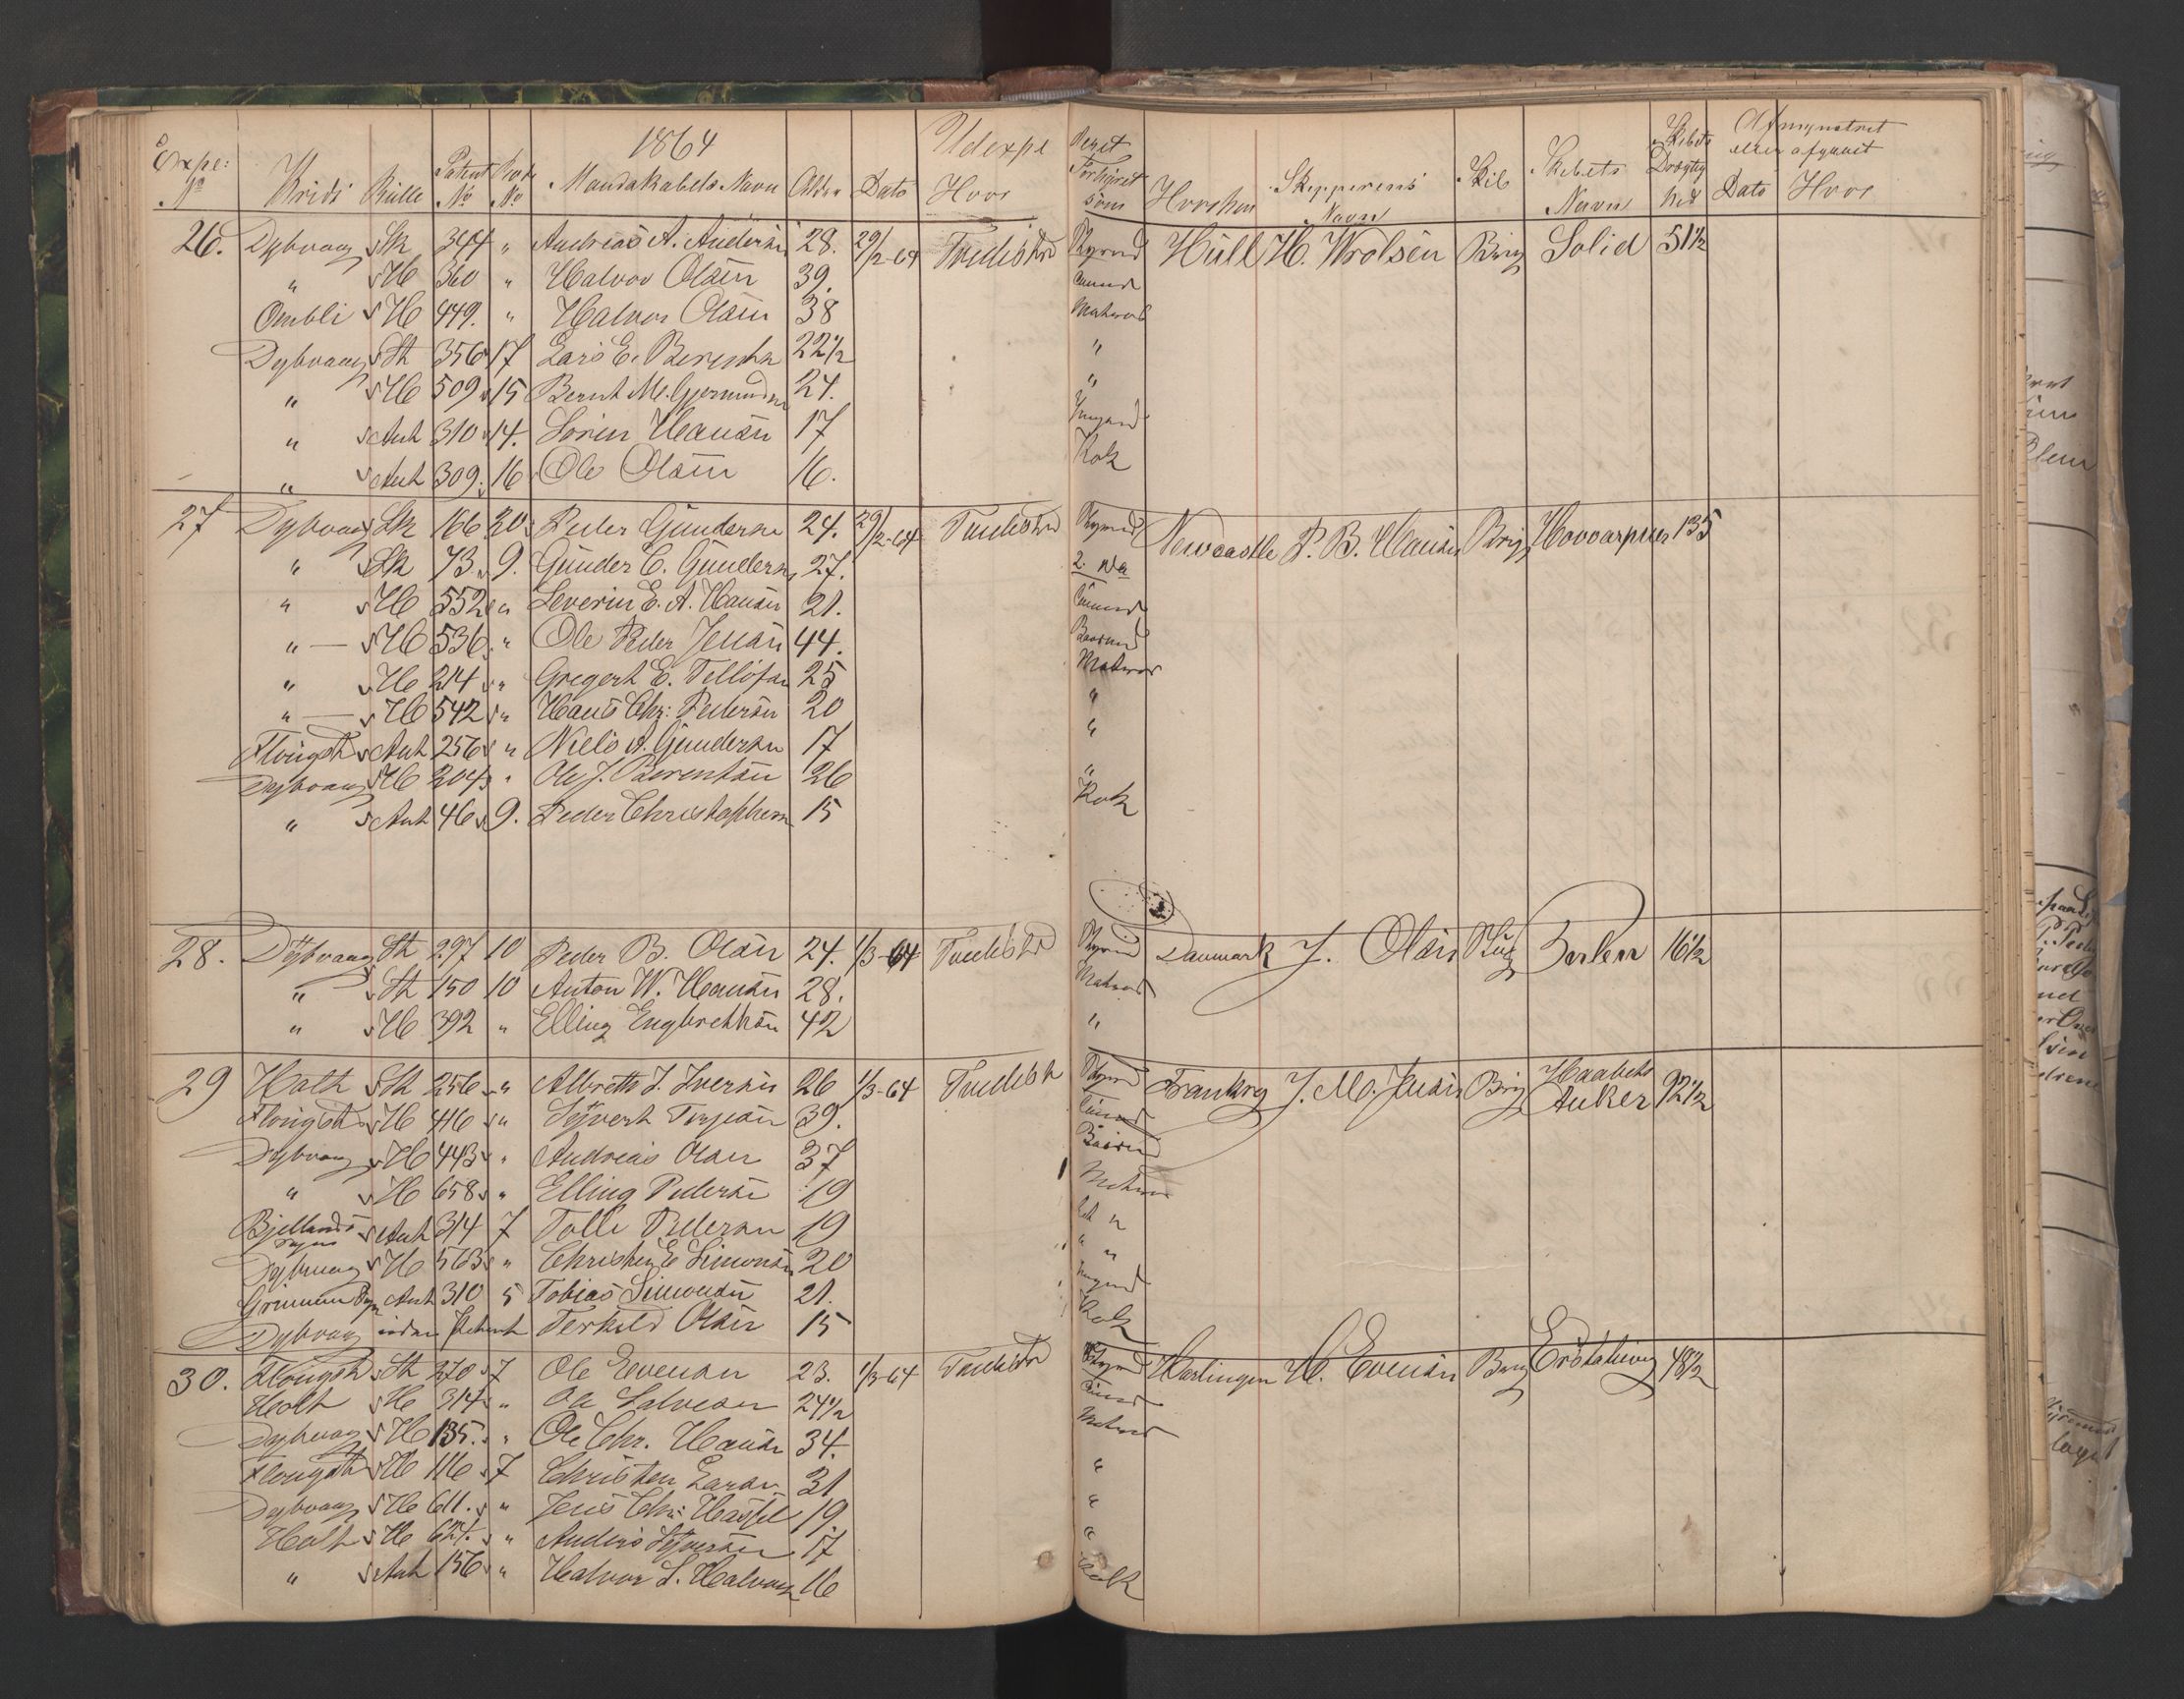 1864
Expe: No Krids Rulle Patent No Rode No Mandskabets Navn Alder Dato Hvor Udexpe
Værет Forhyret som Hvorhen Skipperens Navn Skib Skibets Navn Skibets Drægtighed Dato Hvor Afmynstret eller afgaaet
26. Dybvaag Sk 344 " Andreas A. Andersen 28. 29/2-64 Tvedestrd Styrmd Hull H. Wrolsen Brig Solid 51½
" H 360 " Halvor Olsen 39.
Ombli H 449. " Halvor Olsen 38 Matros
Dybvaag St 356 17 Lars E. Berentsn 22½ "
" H 509 15 Bernt M. Gjermundsn 24. "
" Auh 310 14. Søren Hansen 17
" Auh 309. 16 Ole Olsen 16. Kok
27 Dybvaag Sk 166 20 Peder Gundersen 24. 29/2-64 Tvedestrd Styrmd Newcastle P. B. Hansen Brig 135
" Sk 73 9. Gunder C. Gundersn 27. 2. do
" H 552 " Severin E. A. Hansen 21.
" — H 536 " Ole Peder Jensen 44. Baadsmd
" H 214 " Gregert E. Tellefsn 25 Matros
" — H 542 " Hans Chr: Pedersen 20 "
Flougst Auh 256 " Niels A. Gundersen 17 "
Dybvaag H 204 " Ole J. Berentsen 26 "
" Auh 46 9. Peder Christophersn 15 Kok
28. Dybvaag St 297 10 Peder B. Olsen 24. 1/3-64 Tvedestrd Styrmd Danmark J. Olsen 16½
" St 150 10 Anton W. Hansen 28. Matros
" H 392 " Elling Engbrethsen 42 "
29 Holt Sk 256 " Albreth J. Iversen 26 1/3-64 Tvedestr Styrmd Frankrig J. M. Jensen Brig Haabets Anker 92½
Flougst H 416 " Syvert Terjesen 39.
Dybvaag H 443 " Andreas Olsen 37
" H 658 " Elling Pedersen 19 Matros
Bjellands Auh 314 7 Tolle Pedersen 19
Dybvaag H 563 " Christen E Simonsen 20 " "
Auh 310 5 Tobias Simonsen 21.
Dybvaag uden Patent Terkeld Olsen 15 Kok
30. Flougst St 270 7 Ole Evensen 23. 1/3-64 Tvedestrd Styrmd Harlingen H. Evensen Brig 48½
Holt H 314 " Ole Salvesen 24½
Dybvaag H 135. " Ole Chr. Hansen 34. Matros
Flougst H 116 7 Christen Larsn 31 "
Dybvaag H 611. " Jens Chr: Hassel 19. "
Holt H " Anders Syversen 17 "
" Auh 156 " Halvor L. Halvorsn 16 Kok